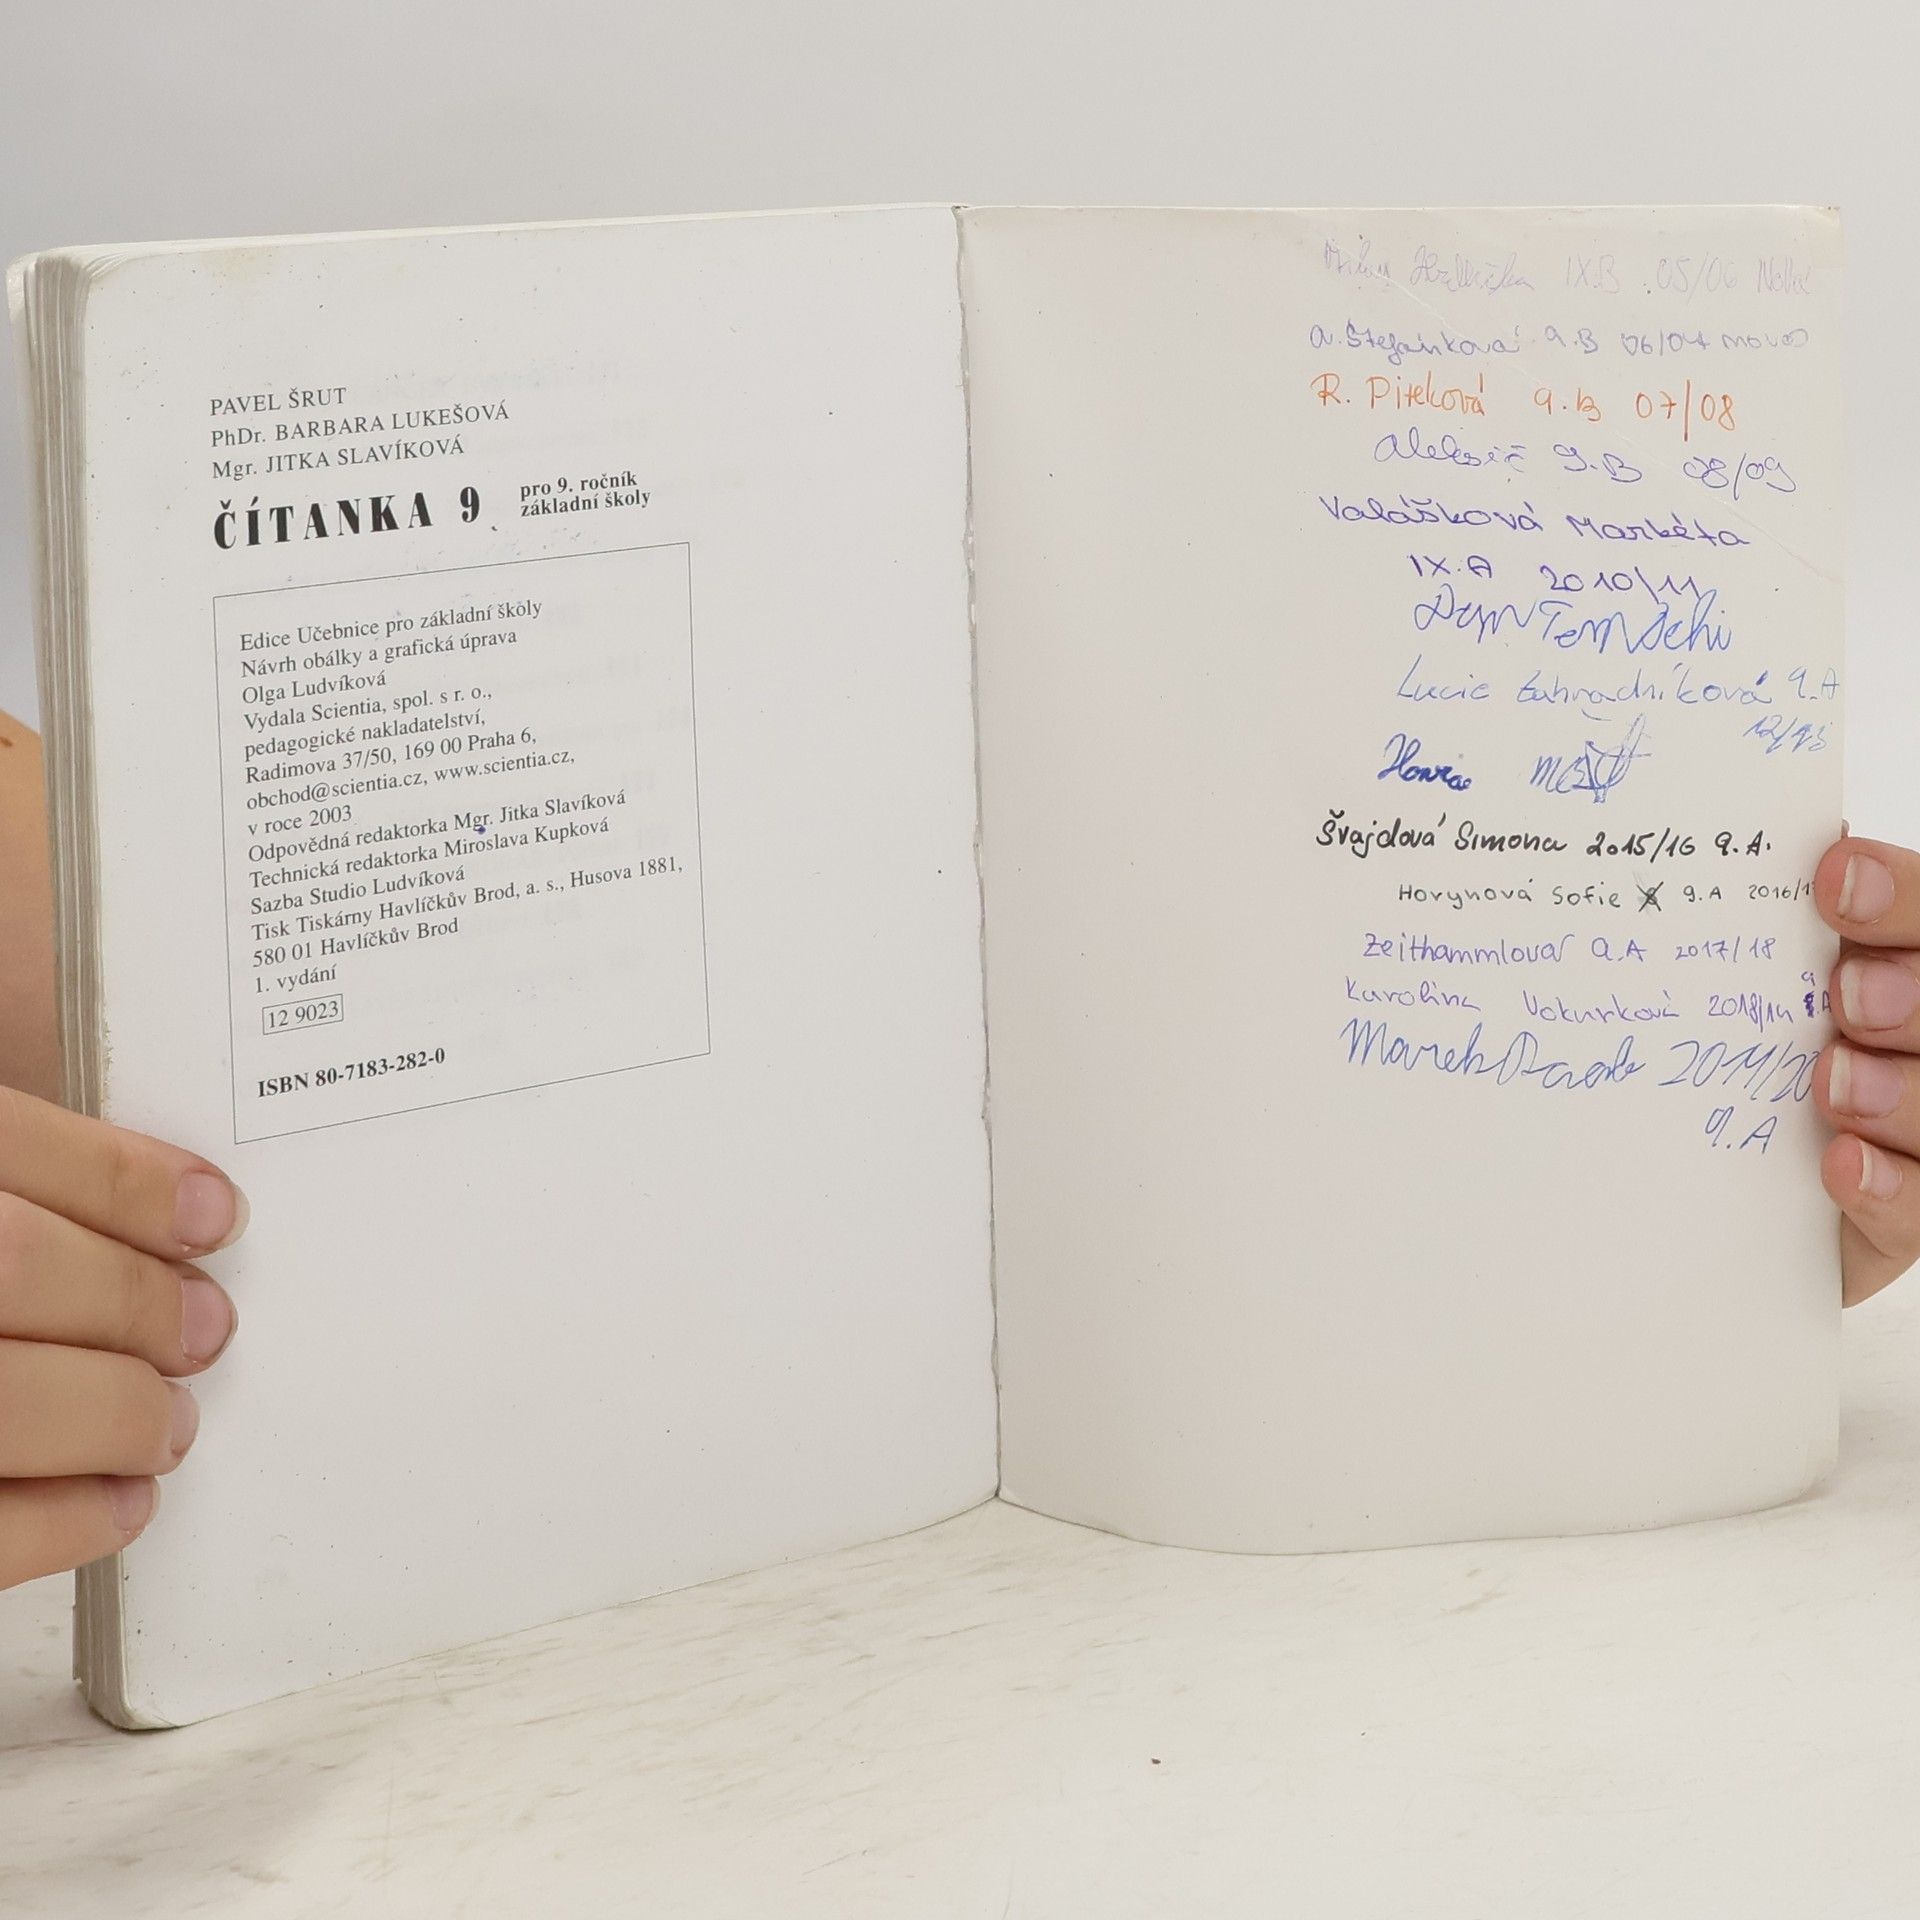 PAVEL ŠRUT
PhDr. BARBARA LUKEŠOVÁ
Mgr. JITKA SLAVÍKOVÁ
ČÍTANKA 9 pro 9. ročník
základní školy
Edice Učebnice pro základní školy
Návrh obálky a grafická úprava
Olga Ludvíková
Vydala Scientia, spol. s r. o.,
pedagogické nakladatelství,
Radimova 37/50, 169 00 Praha 6,
obchod@scientia.cz, www.scientia.cz,
v roce 2003
Odpovědná redaktorka Mgr. Jitka Slavíková
Technická redaktorka Miroslava Kupková
Sazba Studio Ludvíková
Tisk Tiskárny Havlíčkův Brod, a. s., Husova 1881,
580 01 Havlíčkův Brod
1. vydání
12 9023
ISBN 80-7183-282-0
IX.B 05/06 Nová
A. Štefánková 9.B 06/07 nová
R. Piteková 9.B 07/08
Aleksič 9.B 08/09
Valášková Markéta
IX.A 2010/11
Lucie Zahradníková 9.A
12/13
Honza
Švajdová Simona 2015/16 9.A.
Horynová Sofie 9.A 2016/1
Zeithammlová 9.A 2017/18
Karolína Vokurková 2018/19 9.A
Marek
9.A